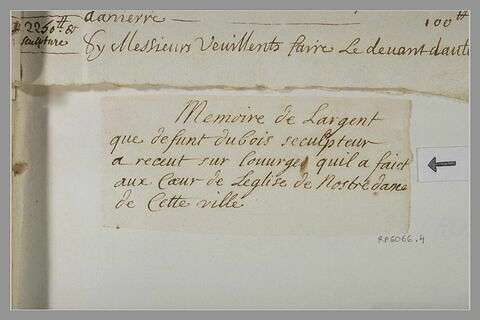 danierre 100tt
2260tt
sculpture
Sy Messieurs Veuillents faire Le devant dautel
Memoire de Largent
que defunt dubois seculpteur
a receut sur Louurge quil a faict
aux Cœur de Leglise de Nostre dame
de Cette ville
RF6066.4